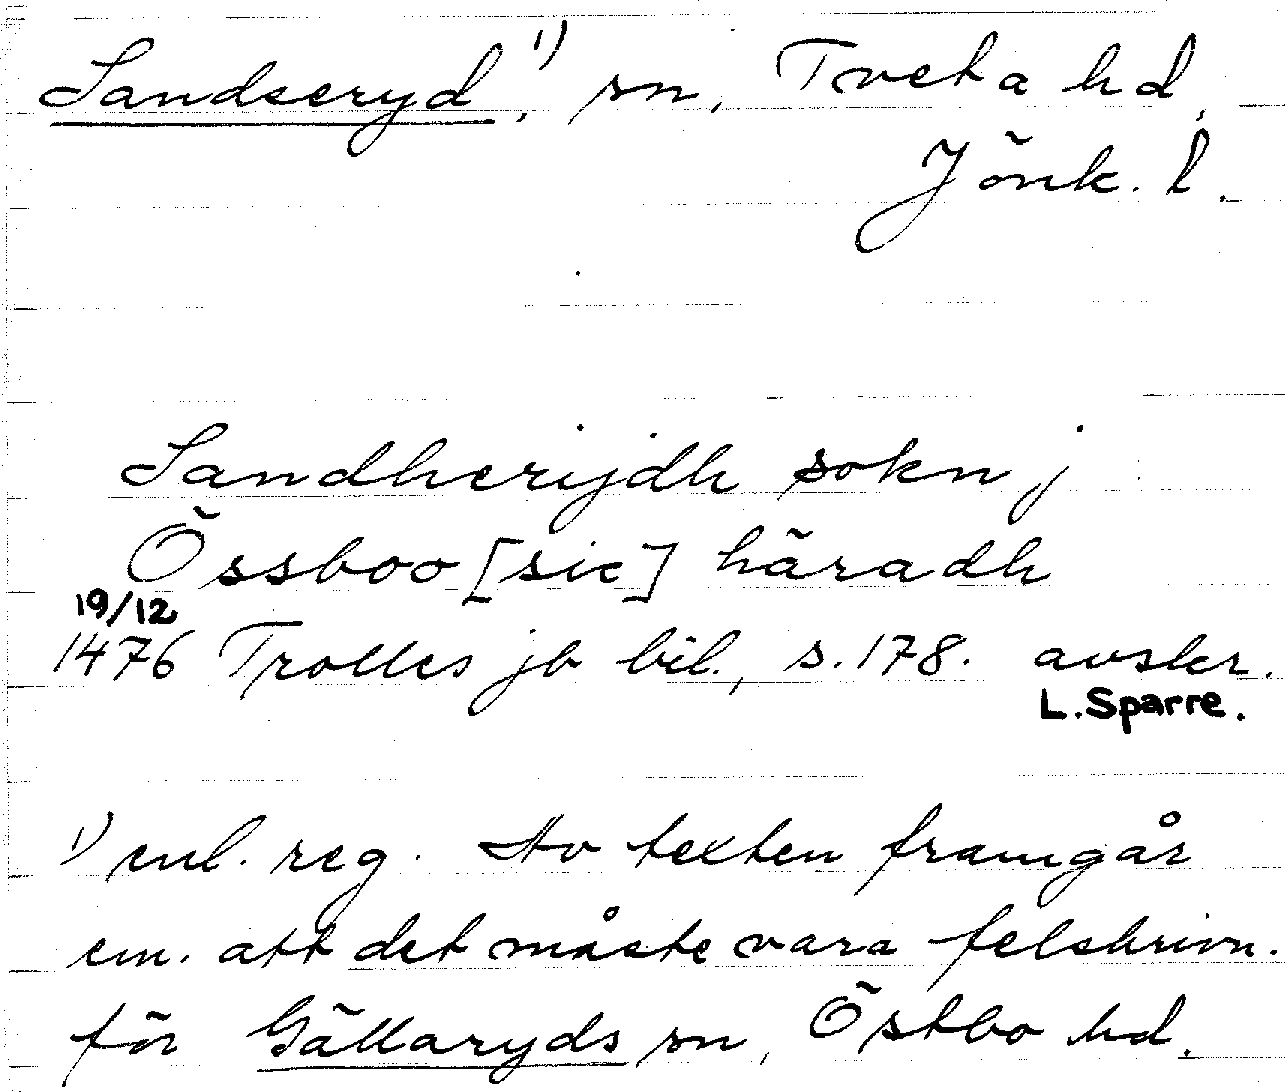 Sandseryd,¹⁾ sn, Tveta hd,
Jönk. l.
Sandherijdh sokn j
Össboo [sic] häradh
19/12
1476 Trolles jb bil., s. 178. avskr.
L. Sparre.
¹⁾ enl. reg. Av texten framgår
em. att det måste vara felskrivn.
för Gällaryds sn, Östbo hd.